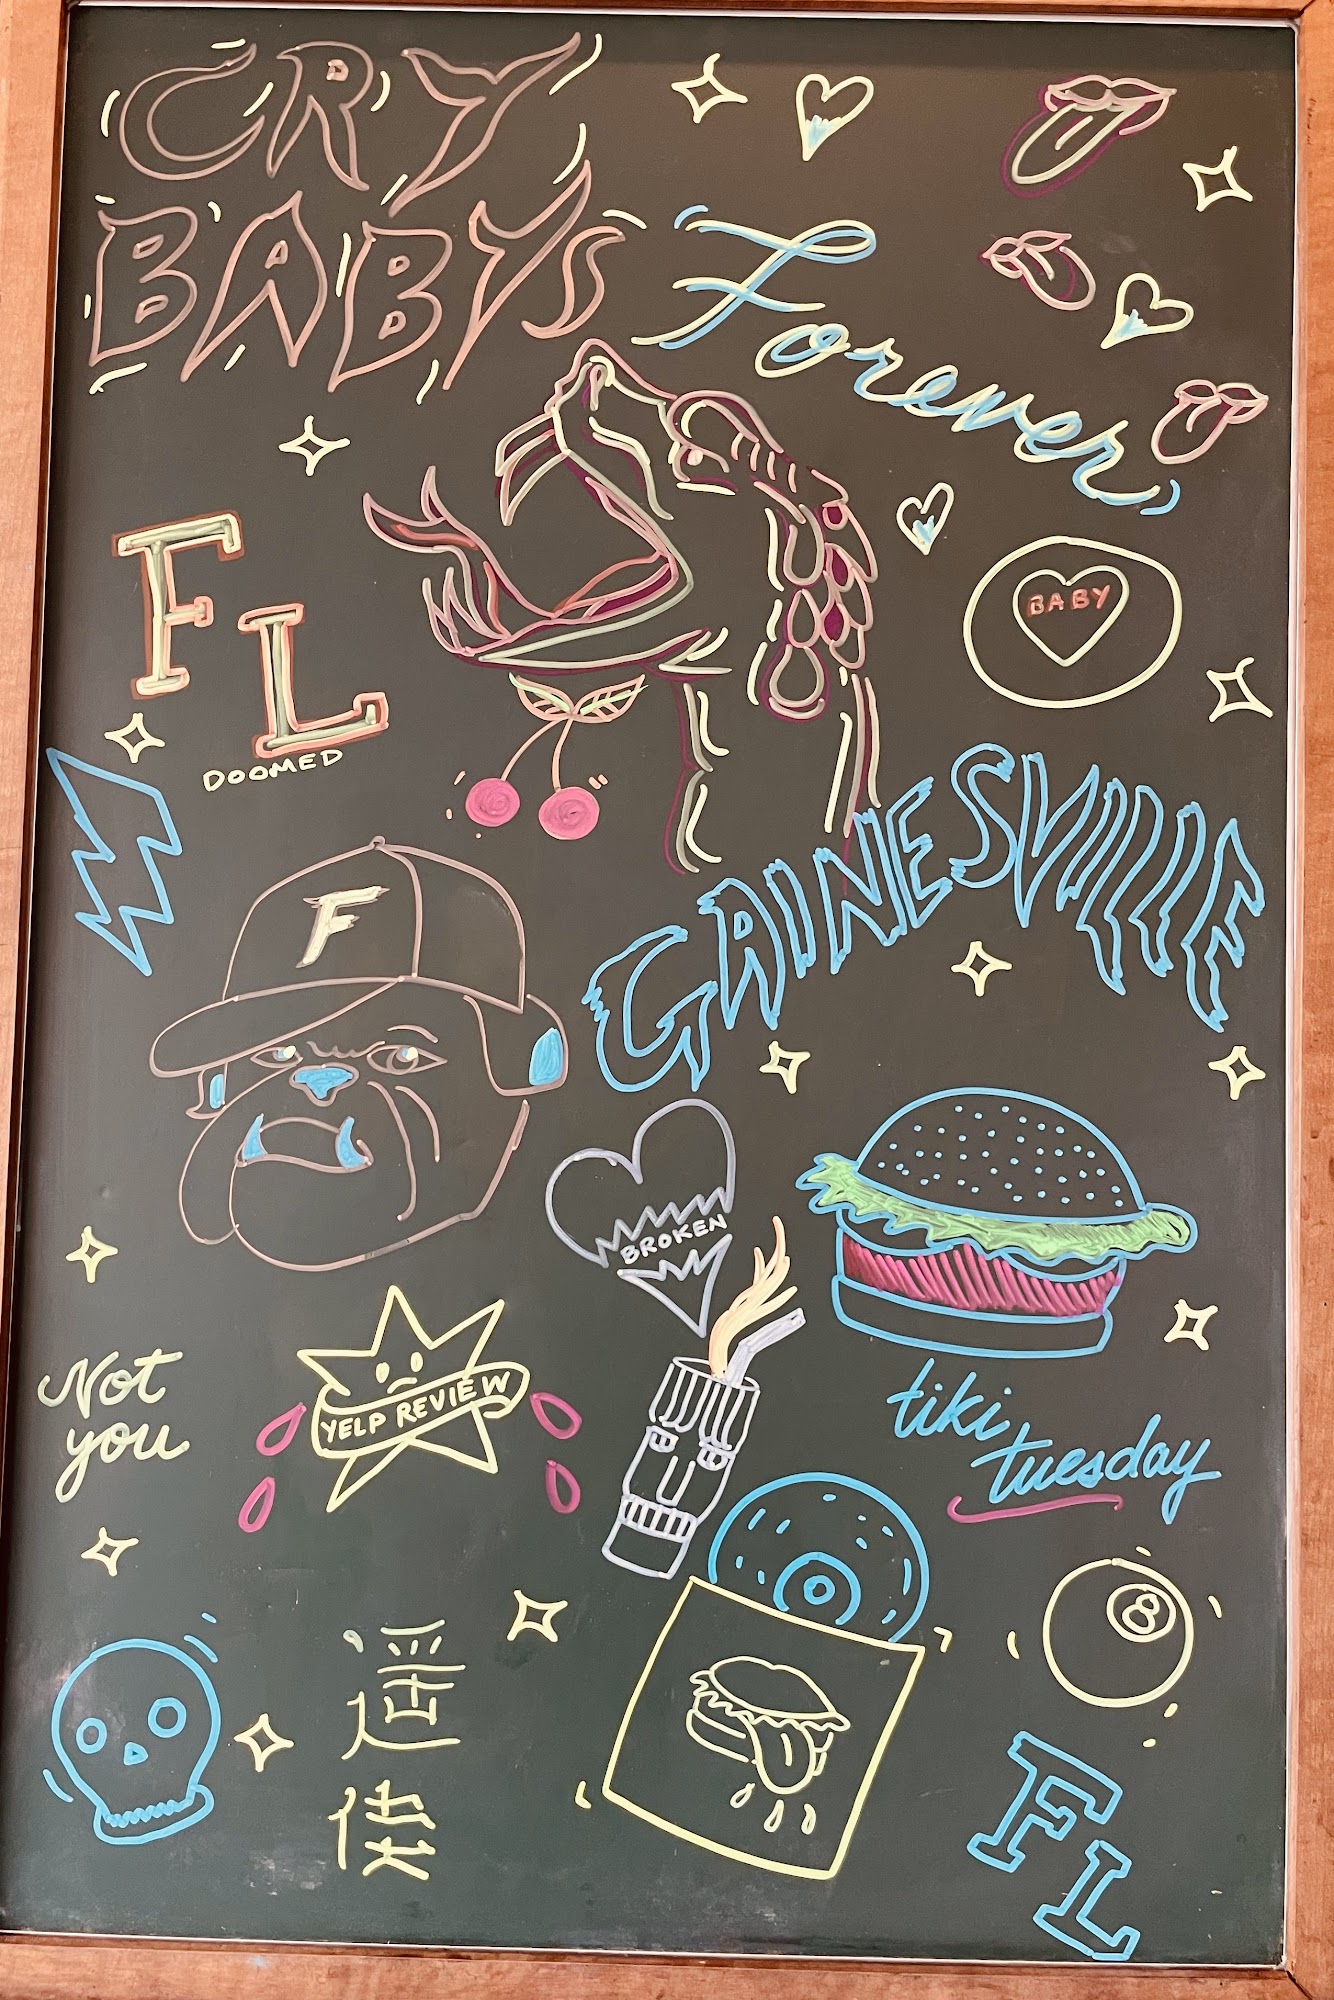 CRY
BABYS
Forever
FL
DOOMED
BABY
GAINESVILLE
F
BROKEN
Not
you
YELP REVIEW
tiki
tuesday
8
FL